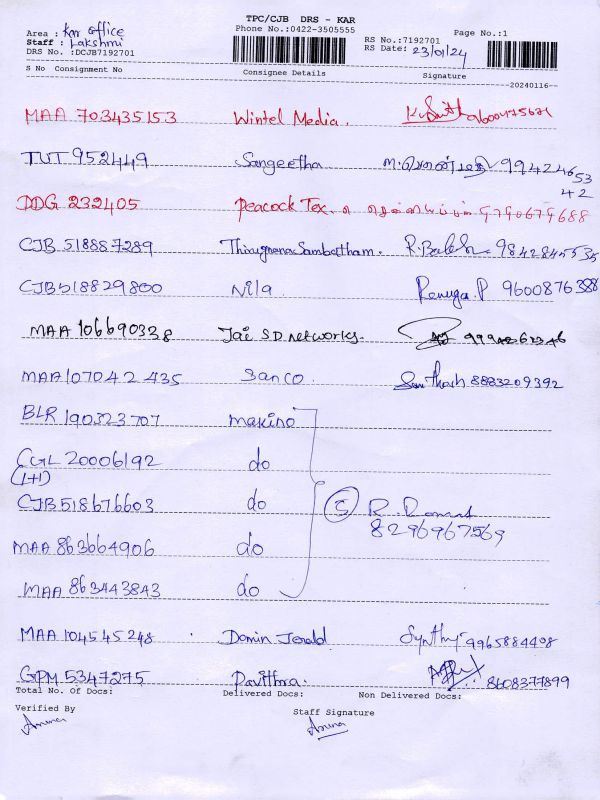 TPC/CJB DRS - KAR
Area : Kar office
Phone No.:0422-3505555
Page No.:1
Staff : Lakshmi
RS No.:7192701
DRS No. :DCJB7192701
RS Date: 23/01/24
S No Consignment No Consignee Details Signature
20240116
MAA 703435153 Wintel Media.
TUT 952449 Sangeetha 9942465342
DDG 232405 Peacock Tex. 9790679688
CJB 518887289 Thirugnana Sambattham. 9842845535
CJB518829800 Nila Renuga.P 9600876388
MAA 106690338 Jai SD networks.
MAA107042435 Sanco. Santhosh 8883209392
BLR 190323707 makino
CGL 20006192 do
(1+1)
CJB518676603 do (5) R.
8296967569
MAA 863664906 do
MAA 863443843 do
MAA 104545248 Domin Jerald 9965884498
GPM 5347275 Pavithra 8608377899
Total No. Of Docs: Delivered Docs: Non Delivered Docs:
Verified By
Staff Signature